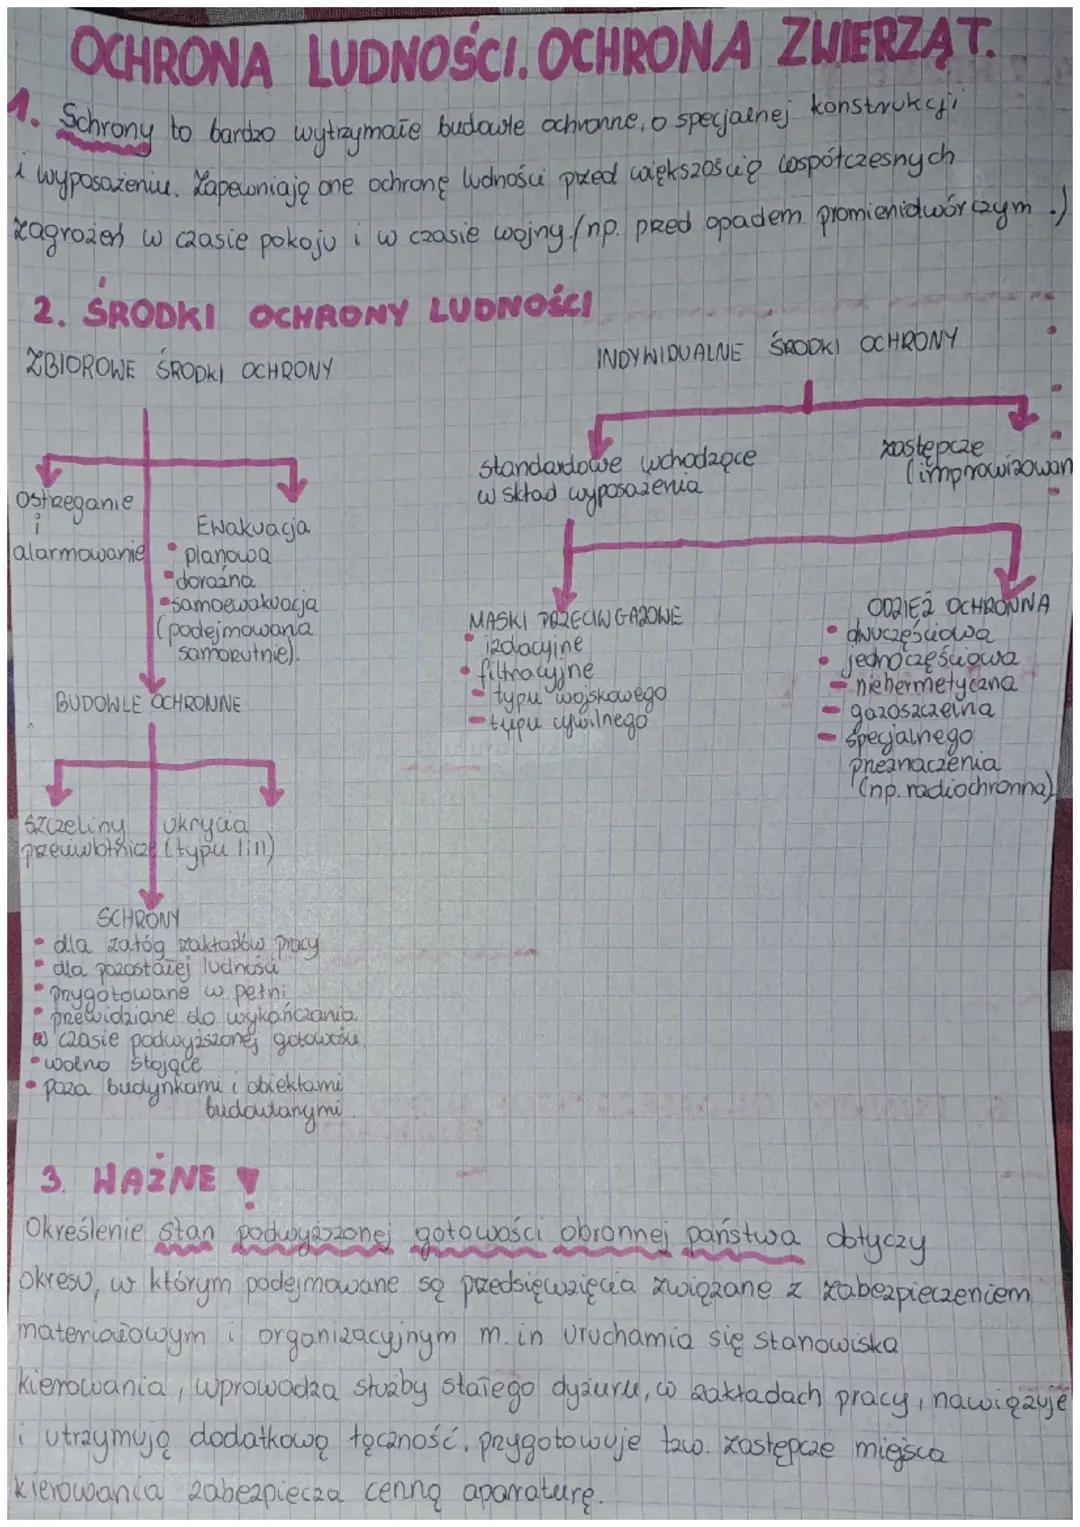 OCHRONA LUDNOŚCI. OCHRONA ZWIERZĄT.
1. Schrony to bardzo wytrzymałe budowle ochronne, o specjalnej konstrukcji
i wyposażeniu. Zapewniają one ochronę ludności przed większością współczesnych
zagrożeń w czasie pokoju i w czasie wojny. (np. przed opadem promieniotwórczym.)
2. ŚRODKI OCHRONY LUDNOŚCI
ZBIOROWE ŚRODKI OCHRONY
Ostrzeganie
i
alarmowanie
Ewakuacja
• planowa
• doraźna
• samoewakuacja
(podejmowana
samorzutnie).
BUDOWLE OCHRONNE
szczeliny
przeciwlotnicze
ukrycia
(typu I i II)
SCHRONY
• dla załóg zakładów pracy
• dla pozostałej ludności
• przygotowane w pełni
• przewidziane do wykończania
w czasie podwyższonej gotowości
• wolno stojące
• poza budynkami i obiektami
budowlanymi.
INDYWIDUALNE ŚRODKI OCHRONY
standardowe wchodzące
w skład wyposażenia
zastępcze
(improwizowan
MASKI PRZECIWGAZOWE
• izolacyjne
• filtracyjne
- typu wojskowego
- typu cywilnego
ODZIEŻ OCHRONNA
• dwuczęściowa
• jednoczęściowa
- niehermetyczna
- gazoszczelna
- specjalnego
przeznaczenia
(np. radiochronna)
3. WAŻNE !
Określenie stan podwyższonej gotowości obronnej państwa dotyczy
okresu, w którym podejmowane są przedsięwzięcia związane z zabezpieczeniem
materiałowym i organizacyjnym m.in uruchamia się stanowiska
kierowania, wprowadza służby stałego dyżuru, w zakładach pracy, nawiązuje
i utrzymują dodatkową łączność, przygotowuje tzw. zastępcze miejsca
kierowania zabezpiecza cenną aparaturę.